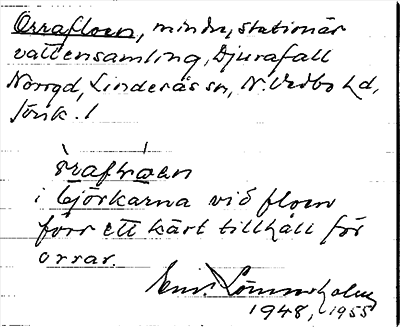 Orrafloen, mindre, stationär
vattensamling, Djurafall
Norrgd, Linderås sn, N. Vedbo hd,
Jönk. l
i björkarna vid floen
förr ett kärt tillhåll för
orrar.
1948, 1955